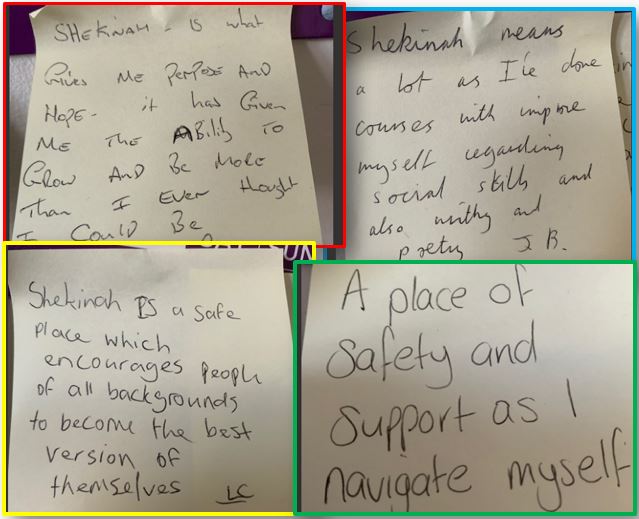 SHEKINAH - IS what
Gives ME PERPOSE AND
HOPE - it has Given
ME THE ABility TO
GROW AND BE MORE
THAN I EVER thought
I COULD BE
Shekinah means
a lot as I'ie done
courses with improve
myself regarding
social skills and
also writhy and
poetry J.B.
Shekinah is a safe
place which
encourages people
of all backgrounds
to become the best
version of
themselves LC
A place of
safety and
support as I
navigate myself